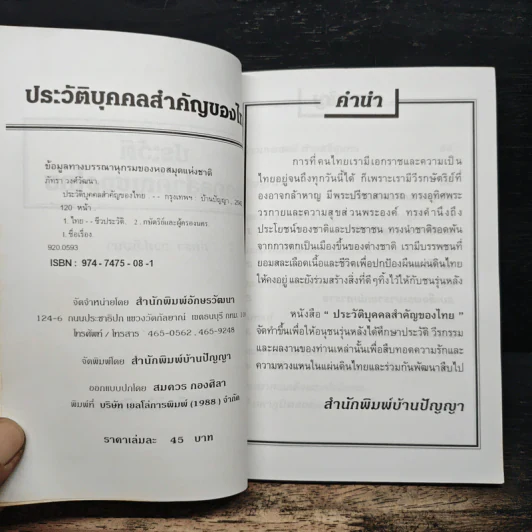 ประวัติบุคคลสำคัญของไท
ข้อมูลทางบรรณานุกรมของหอสมุดแห่งชาติ
ภัทรา วงศ์วัฒนา.
ประวัติบุคคลสำคัญของไทย. - - กรุงเทพฯ : บ้านปัญญา,
120 หน้า.
1. ไทย - - ชีวประวัติ. 2. กษัตริย์และผู้ครองนคร.
I. ชื่อเรื่อง.
920.0593
ISBN : 974-7475-08-1
จัดจำหน่ายโดย สำนักพิมพ์อักษรวัฒนา
124-6 ถนนประชาธิปก แขวงวัดกัลยาณ์ เขตธนบุรี กทม.
โทรศัพท์ / โทรสาร 465-0562, 465-9248
จัดพิมพ์โดย สำนักพิมพ์บ้านปัญญา
ออกแบบปกโดย สมควร กองศิลา
พิมพ์ที่ บริษัท เยลโล่การพิมพ์ (1988) จำกัด
ราคาเล่มละ 45 บาท
คำนำ
การที่คนไทยเรามีเอกราชและความเป็น
ไทยอยู่จนถึงทุกวันนี้ได้ ก็เพราะเรามีวีรกษัตริย์ที่
ทรงอาจกล้าหาญ มีพระปรีชาสามารถ ทรงอุทิศพระ
วรกายและความสุขส่วนพระองค์ ทรงคำนึงถึง
ประโยชน์ของชาติและประชาชน ทรงนำชาติรอดพ้น
จากการตกเป็นเมืองขึ้นของต่างชาติ เรามีบรรพชนที่
ยอมสละเลือดเนื้อและชีวิตเพื่อปกป้องผืนแผ่นดินไทย
ให้คงอยู่ และยังร่วมสร้างสิ่งที่ดีๆทิ้งไว้ให้กับชนรุ่นหลัง
หนังสือ " ประวัติบุคคลสำคัญของไทย "
จัดทำขึ้นเพื่อให้อนุชนรุ่นหลังได้ศึกษาประวัติ วีรกรรม
และผลงานของท่านเหล่านั้นเพื่อสืบทอดความรักและ
ความหวงแหนในแผ่นดินไทยและร่วมกันพัฒนาสืบไป
สำนักพิมพ์บ้านปัญญา